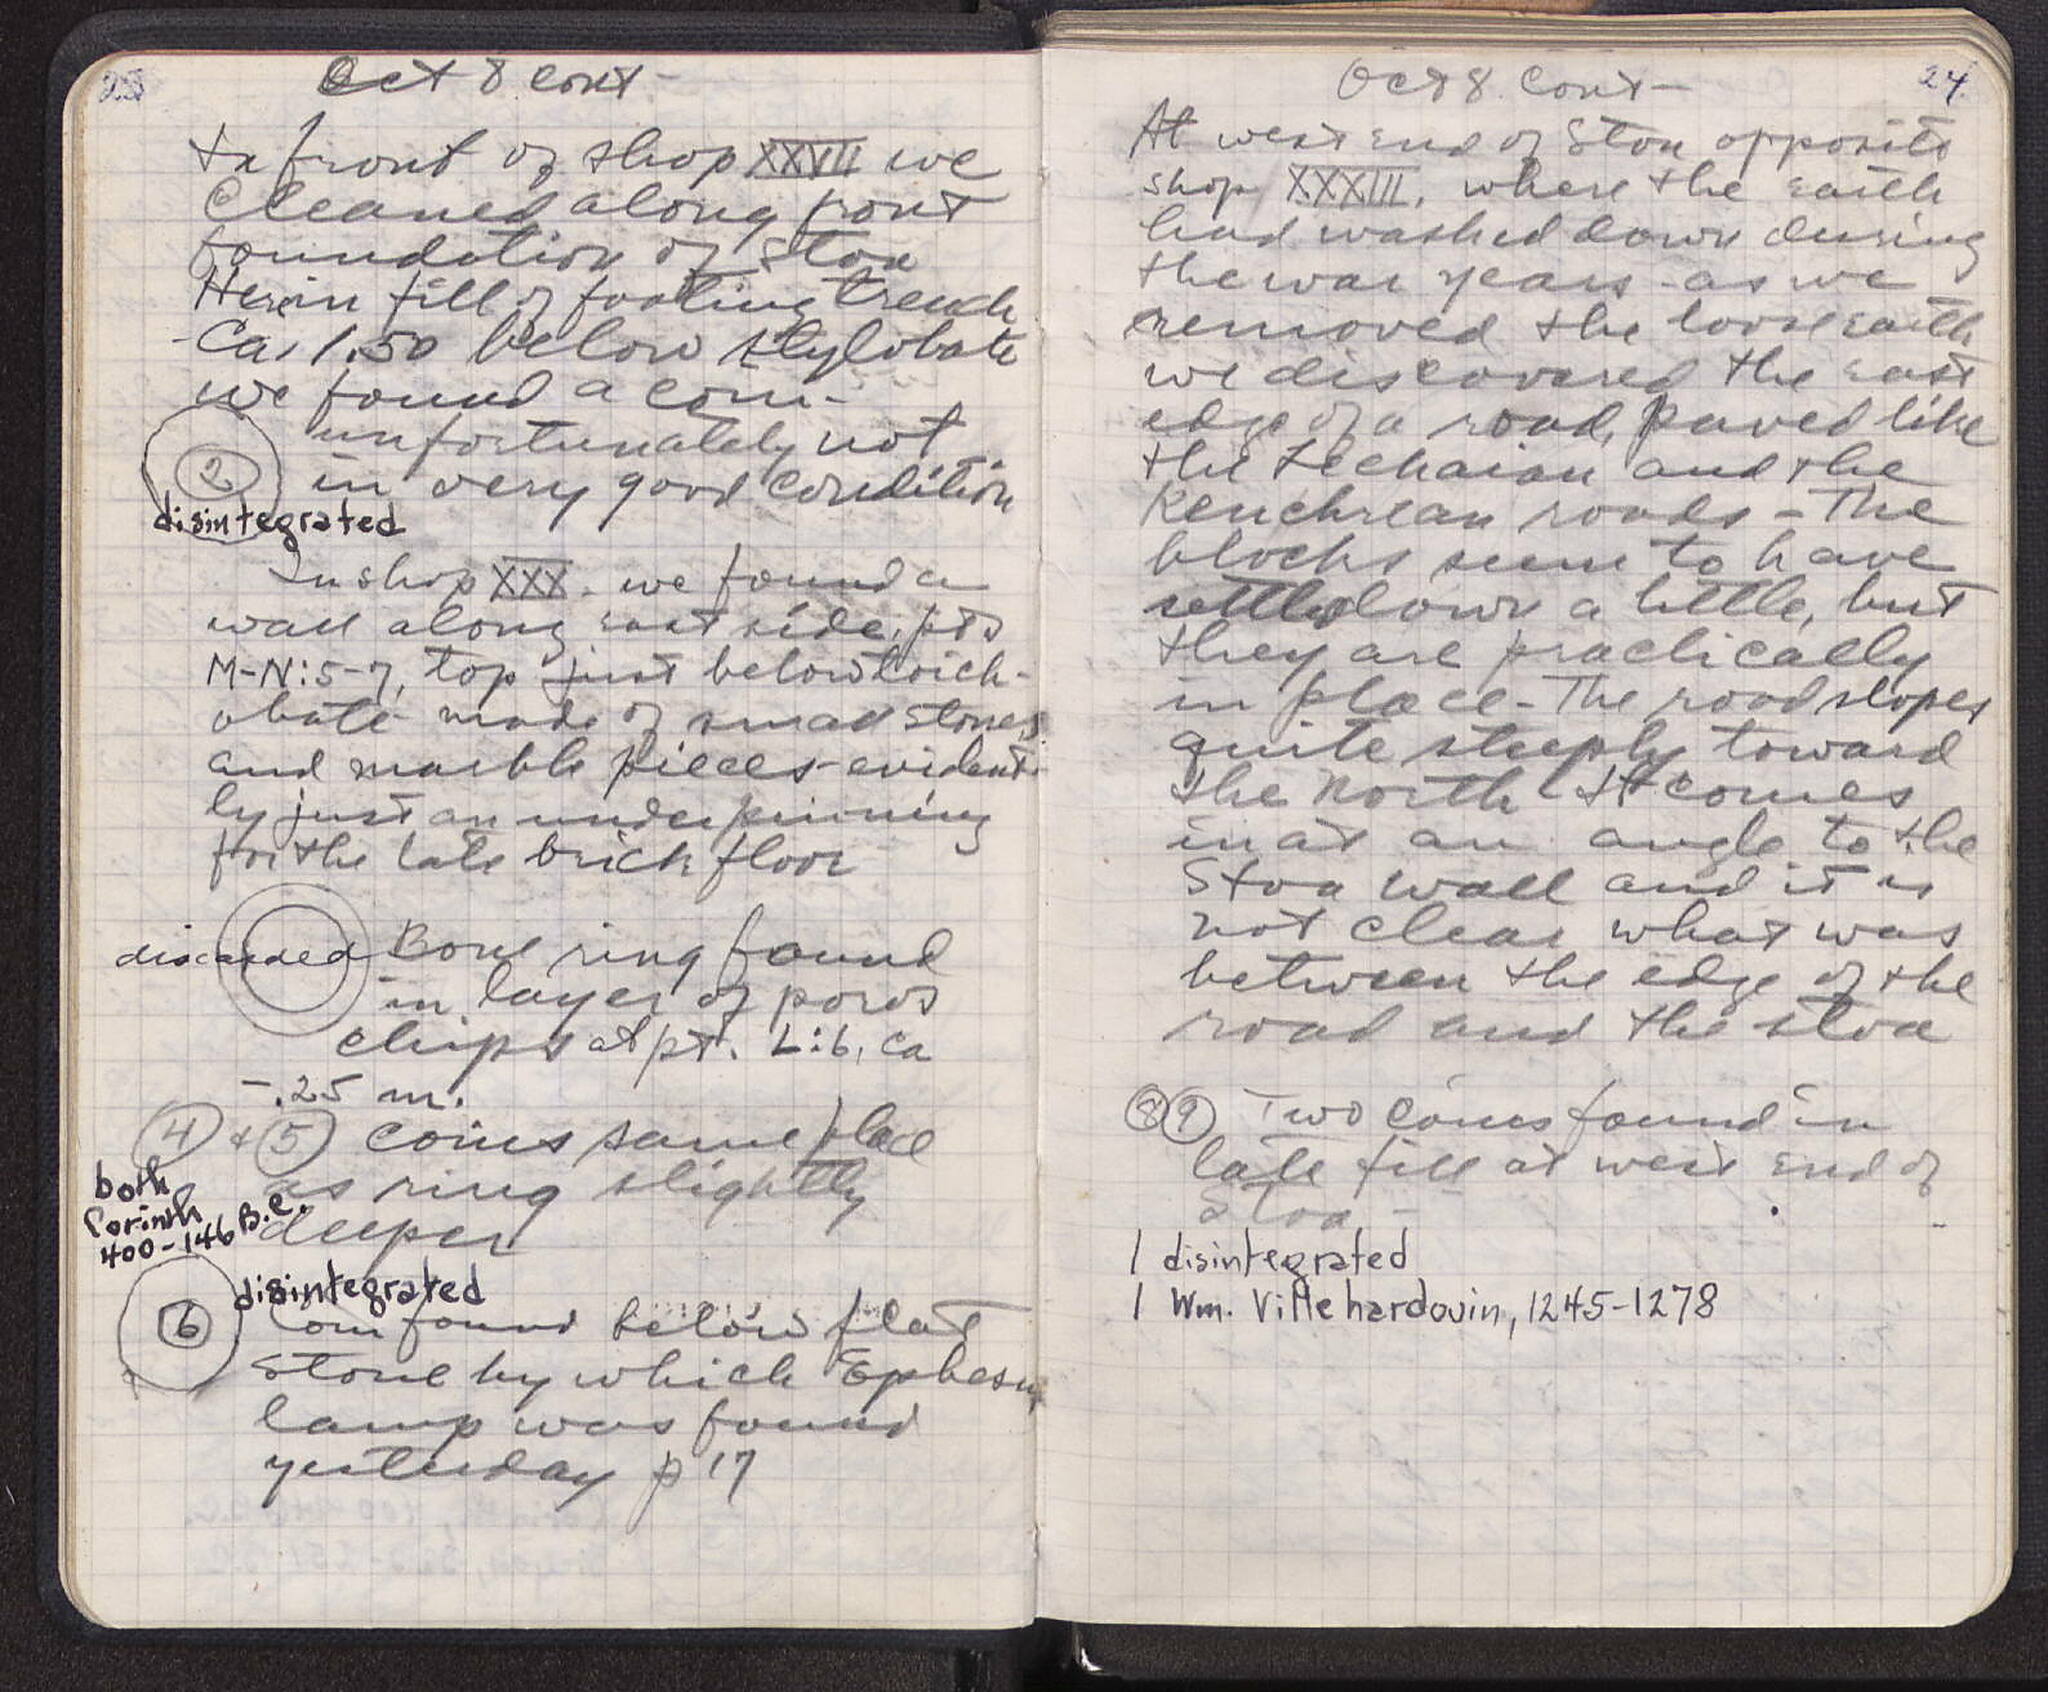 23
Oct 8 cont -
In front of shop XXVII we
cleaned along front
foundation of Stoa
Here in fill of footing trench
Ca. 1.50 below stylobate
we found a coin -
unfortunately not
2 in very good condition
disintegrated
In shop XXX. we found a
wall along east side, pts
M-N:5-7, top just below toich-
obate made of small stones
and marble pieces - evident-
ly just an underpinning
for the late brick floor
discarded Bone ring found
in layer of poros
chips at pt. L:6, ca
-.25 m.
4 + 5 coins same place
as ring slightly
deeper
both
Corinth
400-146 B.C.
disintegrated
6 Coin found below flat
stone by which Ephesus
lamp was found
yesterday p 17
24
Oct 8 Cont -
At west end of Stoa opposite
shop XXXIII, where the earth
had washed down during
the war years - as we
removed the loose earth
we discovered the east
edge of a road, paved like
the Lechaian and the
Kenchrean roads - The
blocks seem to have
settled down a little, but
they are practically
in place - The road slopes
quite steeply toward
the North. It comes
in at an angle to the
Stoa wall and it is
not clear what was
between the edge of the
road and the stoa
8 9 Two coins found in
late fill at west end of
Stoa -
1 disintegrated
1 Wm. Villehardouin, 1245-1278